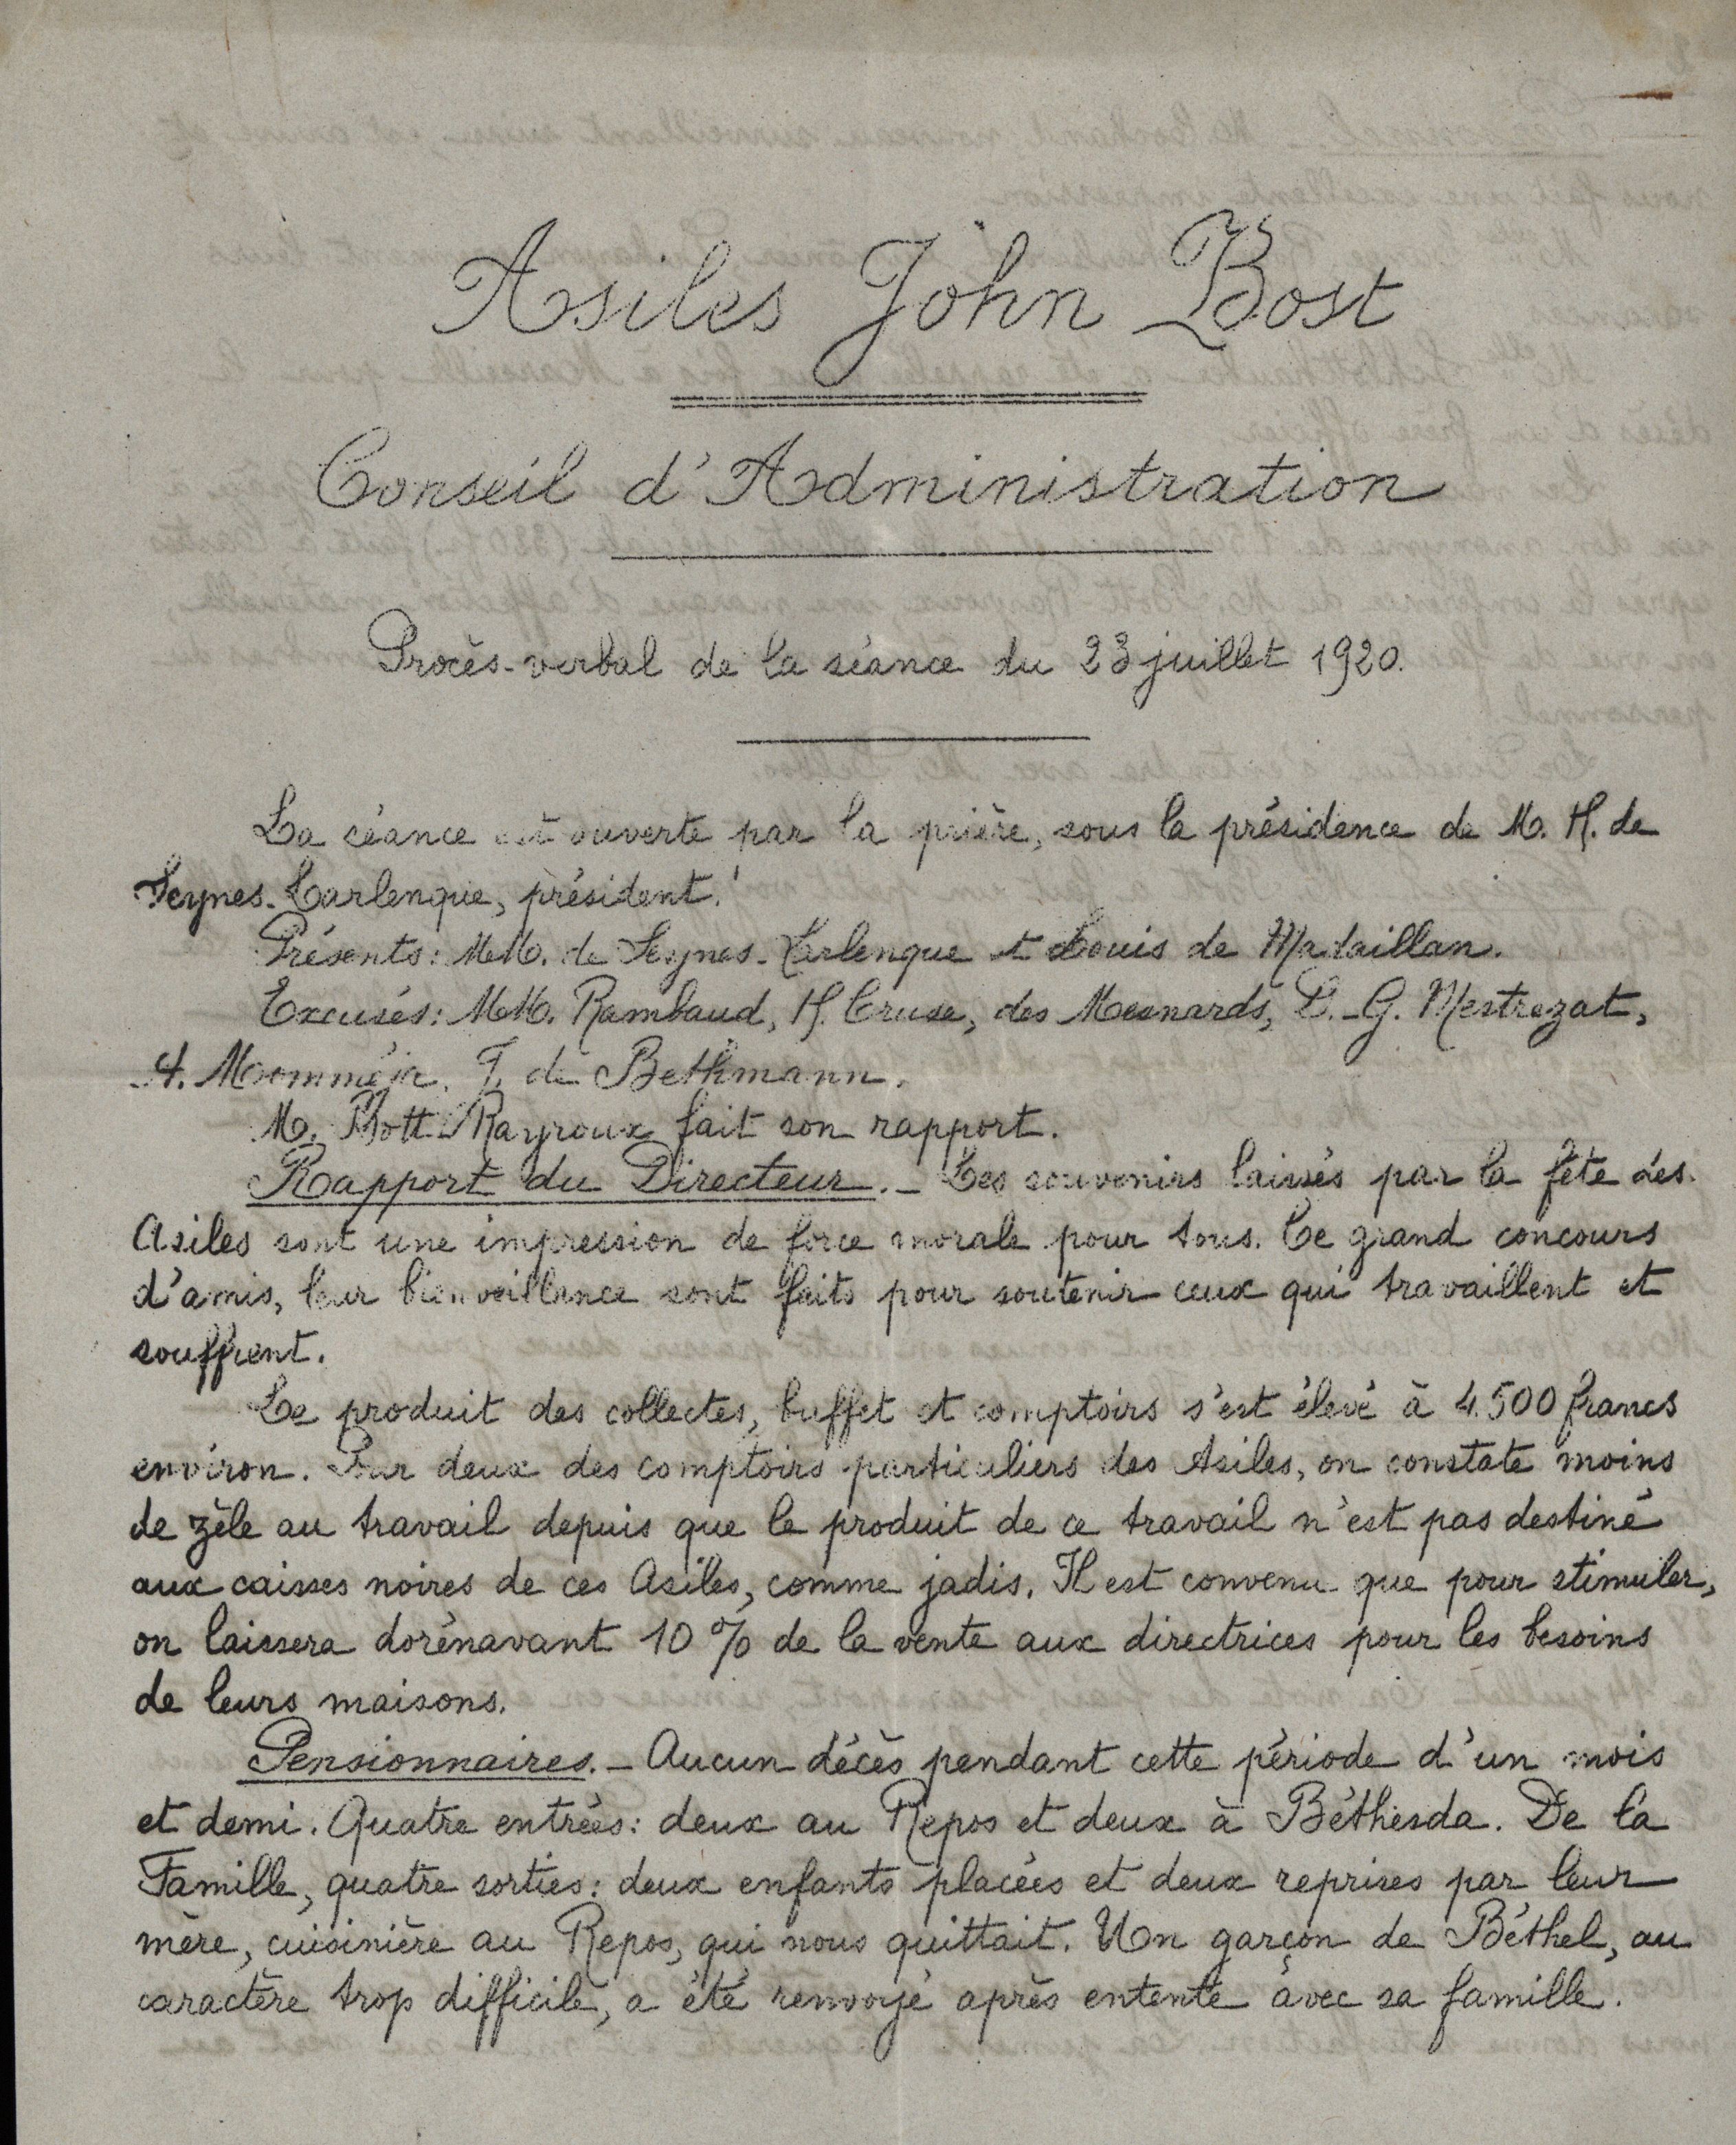 Asiles John Bost
Conseil d'Administration
Procès-verbal de la séance du 23 juillet 1920.
La séance est ouverte par la prière, sous la présidence de M. H. de
Seynes-Larlenque, président.
Présents: MM. de Seynes-Larlenque et Louis de Madaillan.
Excusés: MM. Rambaud, H. Cruse, des Mesnards, P.-G. Mestrezat,
A. Momméja, J. de Bethmann.
M. Bott-Rayroux fait son rapport.
Rapport du Directeur.- Les souvenirs laissés par la fête des
Asiles sont une impression de force morale pour tous. Ce grand concours
d'amis, leur bienveillance sont faits pour soutenir ceux qui travaillent et
souffrent.
Le produit des collectes, buffet et comptoirs s'est élevé à 4.500 francs
environ. Pour deux des comptoirs particuliers des Asiles, on constate moins
de zèle au travail depuis que le produit de ce travail n'est pas destiné
aux caisses noires de ces Asiles, comme jadis. Il est convenu que pour stimuler,
on laissera dorénavant 10 % de la vente aux directrices pour les besoins
de leurs maisons.
Pensionnaires.- Aucun décès pendant cette période d'un mois
et demi. Quatre entrées: deux au Repos et deux à Béthesda. De la
Famille, quatre sorties: deux enfants placées et deux reprises par leur
mère, cuisinière au Repos, qui nous quittait. Un garçon de Béthel, au
caractère trop difficile, a été renvoyé après entente avec sa famille.